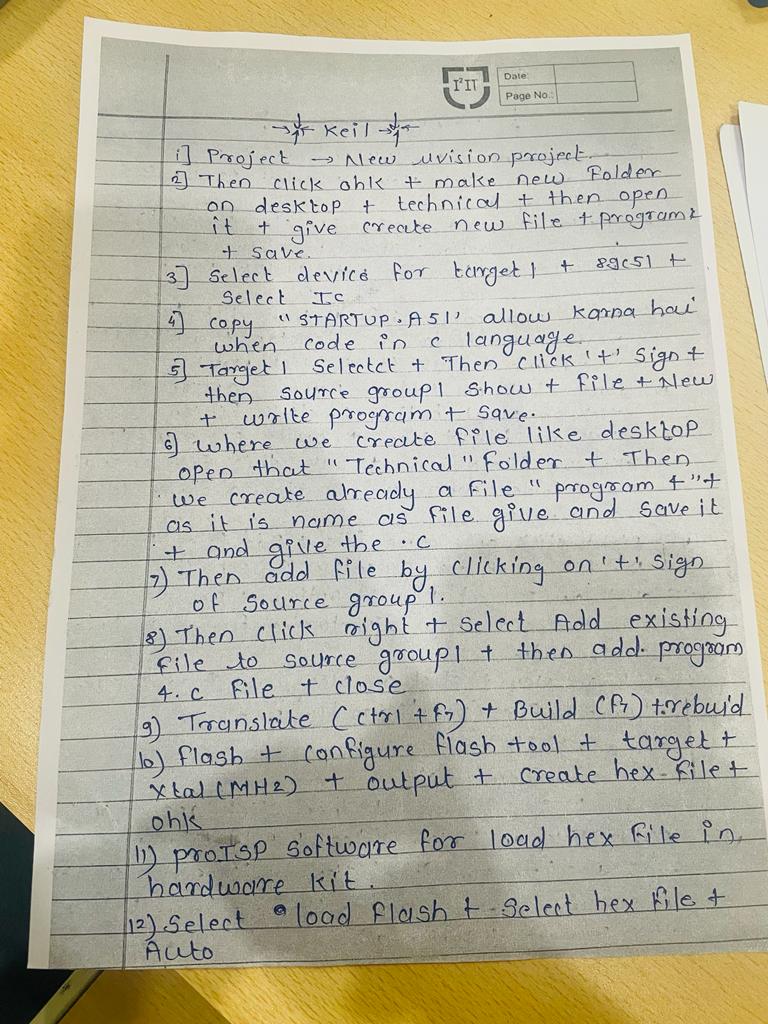 I²IT
Date:
Page No.:
Keil
1] Project → New uvision project.
2] Then click ohk + make new Folder
on desktop + technical + then open
it + give create new file + program
+ save.
3] Select device for target 1 + 89c51 +
Select Ic
4] copy "STARTUP.A51' allow karna hai
when code in c language.
5] Target 1 Selectct + Then click '+' Sign +
then source group1 show + file + New
+ write program + save.
6] where we create file like desktop
open that "Technical" Folder + Then
we create already a file "program 4" +
as it is name as file give and save it
+ and give the .c
7) Then add file by clicking on '+' sign
of source group 1.
8) Then click right + select Add existing
file to source group1 + then add. program
4. c file + close
9) Translate (ctrl + f7) + Build (f7) + rebuid
10) flash + configure flash tool + target +
xtal (MHz) + output + create hex-file +
ohk
11) proISP software for load hex file in
hardware kit.
12) Select load flash + select hex file +
Auto